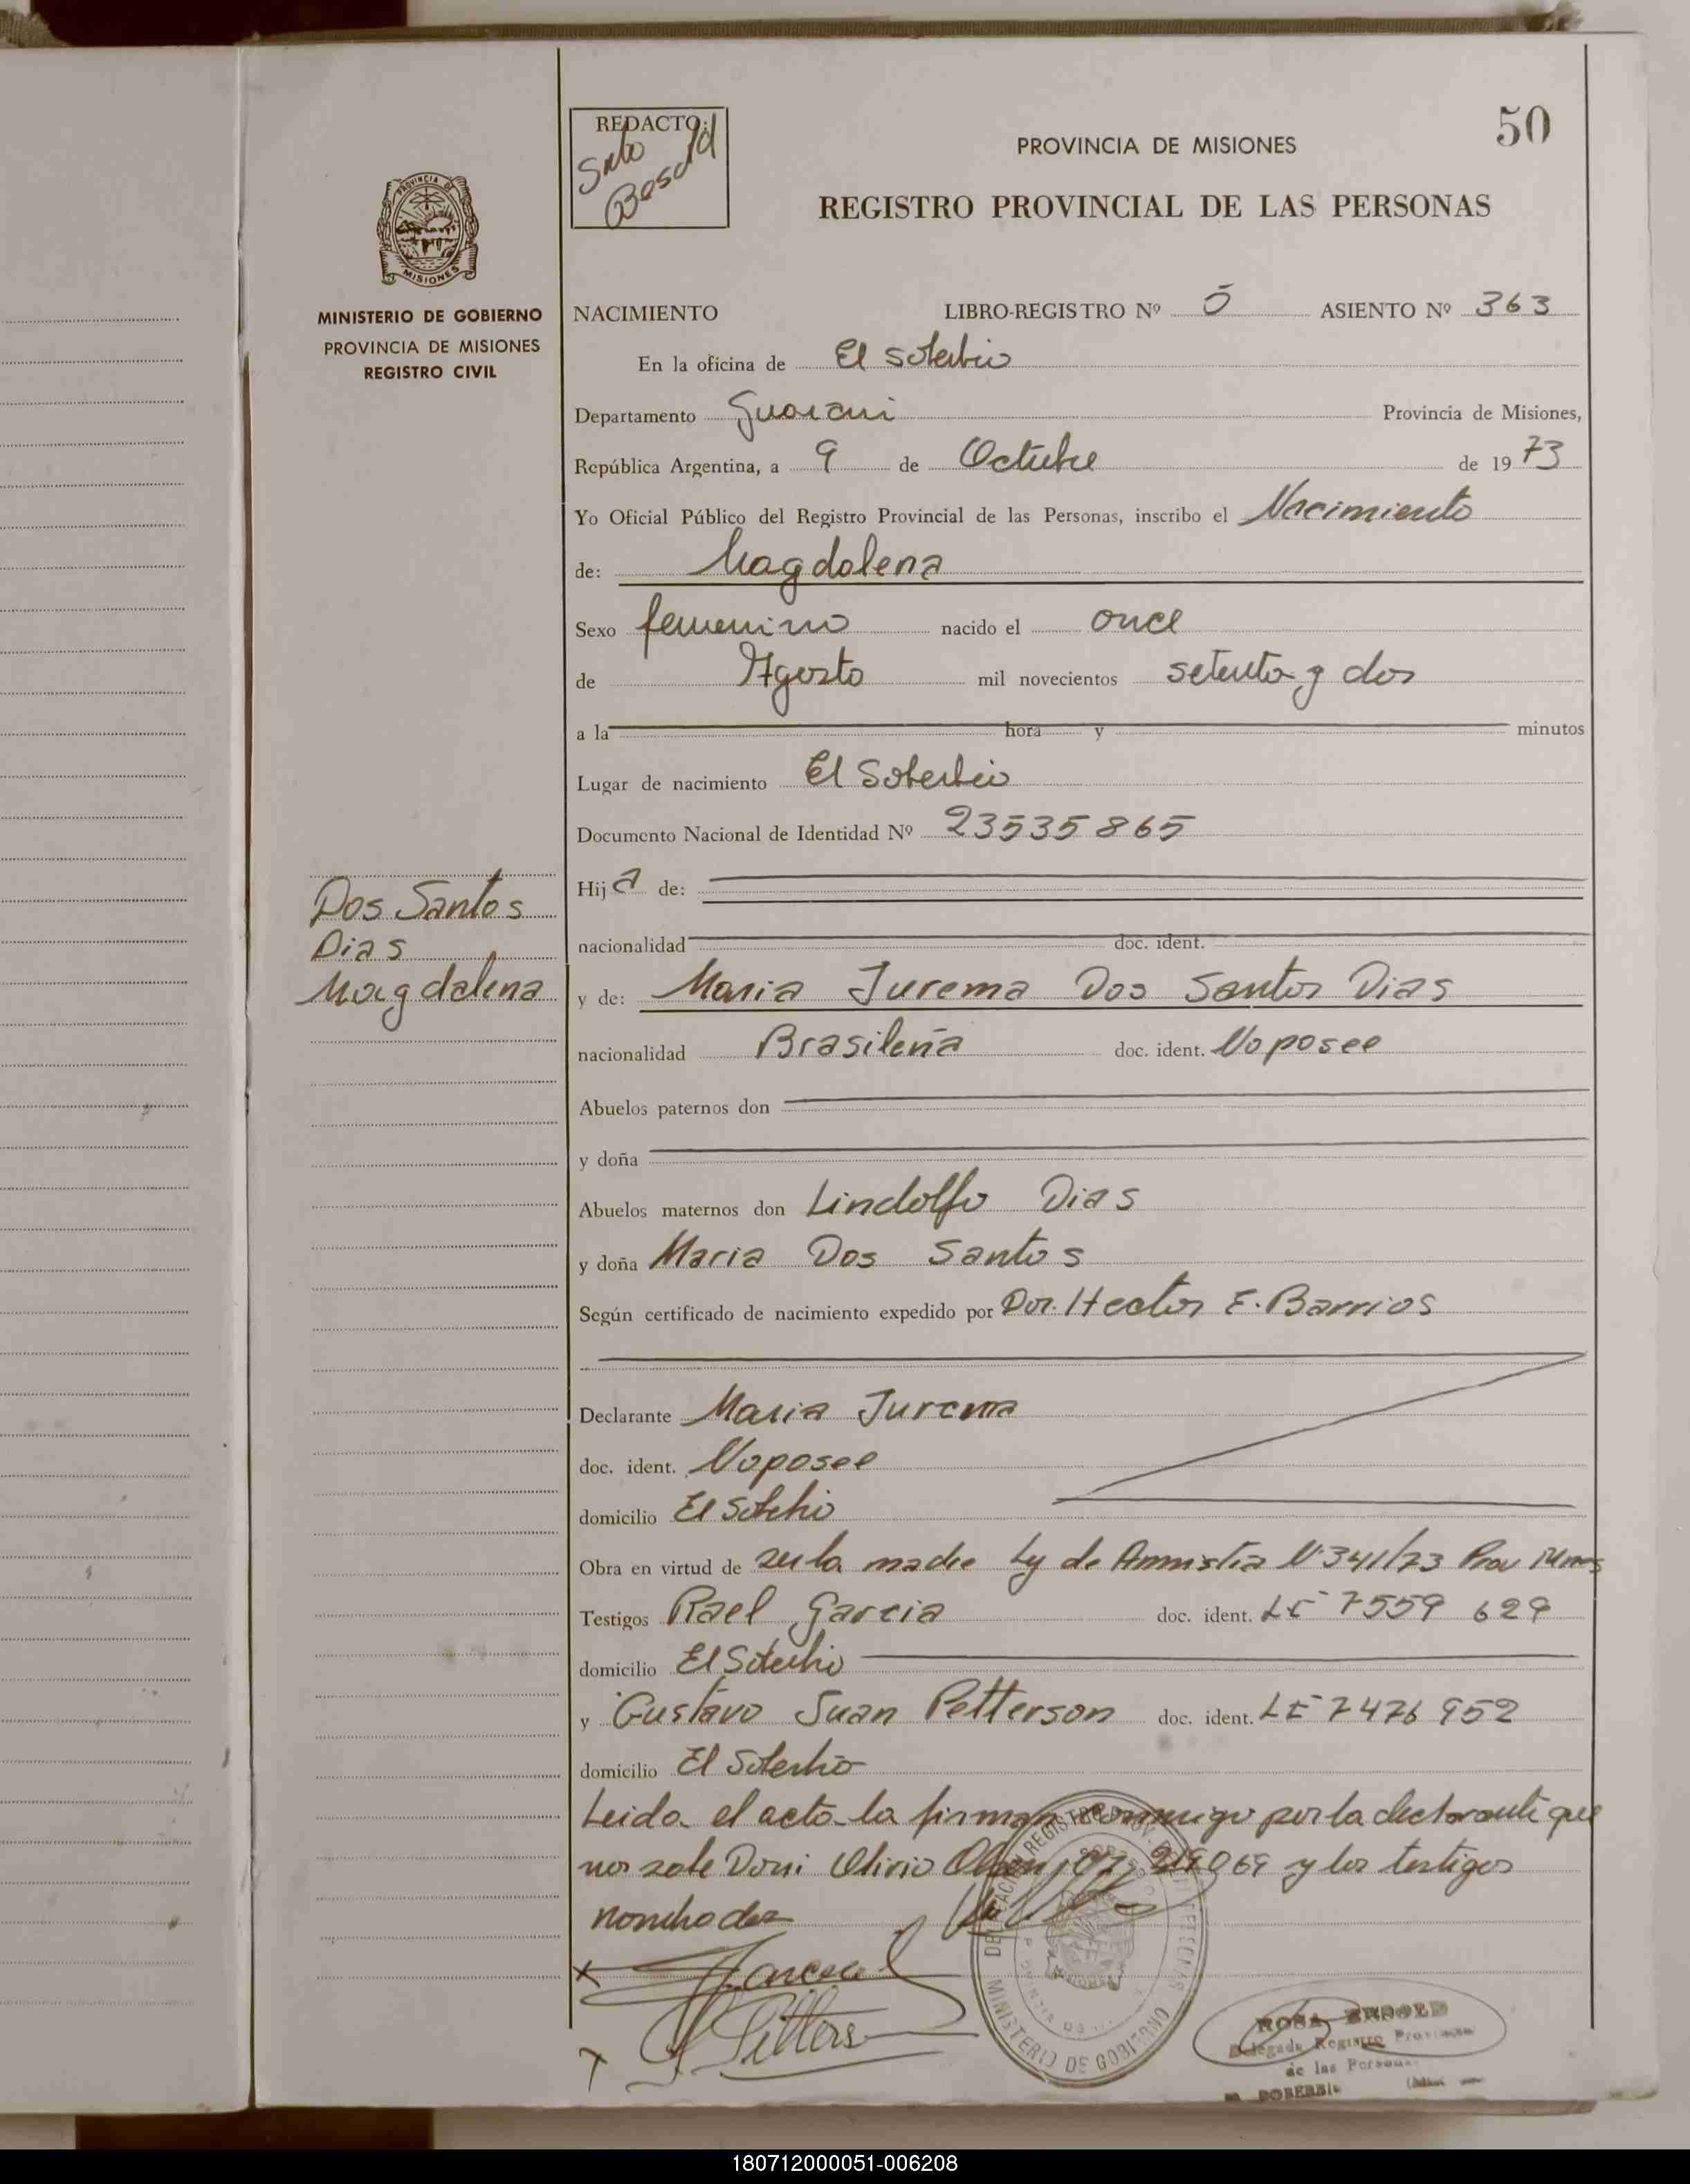 50
REDACTO:
PROVINCIA DE MISIONES
REGISTRO PROVINCIAL DE LAS PERSONAS
PROVINCIA DE
MISIONES
MINISTERIO DE GOBIERNO
PROVINCIA DE MISIONES
REGISTRO CIVIL
NACIMIENTO LIBRO-REGISTRO Nº ASIENTO Nº 363
En la oficina de El Soberbio
Departamento Guarani Provincia de Misiones,
República Argentina, a 9 de Octubre de 1973
Yo Oficial Público del Registro Provincial de las Personas, inscribo el Nacimiento
de: Magdalena
Sexo femenino nacido el once
de Agosto mil novecientos setenta y dos
a la hora y minutos
Lugar de nacimiento El Soberbio
Documento Nacional de Identidad Nº 23535865
Hija de:
nacionalidad doc. ident.
Dos Santos
Dias
Magdalena
y de: Maria Jurema Dos Santos Dias
nacionalidad Brasileña doc. ident. No posee
Abuelos paternos don
y doña
Abuelos maternos don Lindolfo Dias
y doña Maria Dos Santos
Según certificado de nacimiento expedido por Dor. Hector E. Barrios
Declarante Maria Jurema
doc. ident. No posee
domicilio El Soberbio
Obra en virtud de ser la madre Ley de Amnistia Nº 341/73 Prov
Testigos Rael Garcia doc. ident. LE 7559 629
domicilio El Soberbio
y Gustavo Juan Petterson doc. ident. LE 7476 952
domicilio El Soberbio
Leida el acta la firman conmigo por la declarante que
no sabe Olivio y los testigos
nombrados
MINISTERIO DE GOBIERNO
ROSA
Delegada Registro Provincial
de las Personas
SOBERBIO
180712000051-006208